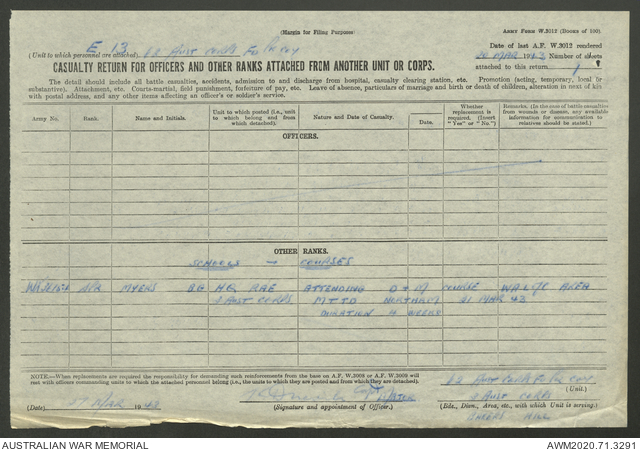 (Margin for Filing Purposes)
ARMY FORM W.3012 (BOOKS OF 100).
E 13
(Unit to which personnel are attached)
Date of last A.F. W.3012 rendered
20 MAR 1943 Number of sheets
attached to this return 1
CASUALTY RETURN FOR OFFICERS AND OTHER RANKS ATTACHED FROM ANOTHER UNIT OR CORPS.
The detail should include all battle casualties, accidents, admission to and discharge from hospital, casualty clearing station, etc. Promotion (acting, temporary, local or
substantive). Attachment, etc. Courts-martial, field punishment, forfeiture of pay, etc. Leave of absence, particulars of marriage and birth or death of children, alteration in next of kin
with postal address, and any other items affecting an officer's or soldier's service.
Army No. Rank. Name and Initials. Unit to which posted (i.e., unit to which belong and from which detached). Nature and Date of Casualty. Date. Whether replacement is required. (Insert "Yes" or "No.") Remarks. (In the case of battle casualties from wounds or disease, any available information for communication to relatives should be stated.)
OFFICERS.
OTHER RANKS.
SCHOOLS — COURSES
SPR MYERS HQ RAE ATTENDING D & M COURSE AREA
AUST CORPS MTTD NORTHAM 21 MAR 43
DURATION 4 WEEKS
NOTE.—When replacements are required the responsibility for demanding such reinforcements from the base on A.F. W.3008 or A.F. W.3009 will
rest with officers commanding units to which the attached personnel belong (i.e., the units to which they are posted and from which they are detached).
(Date) MAR 1943
(Signature and appointment of Officer.)
(Unit.)
AUST CORPS
(Bde., Divn., Area, etc., with which Unit is serving.)
BAKERS HILL
AUSTRALIAN WAR MEMORIAL
AWM2020.71.3291